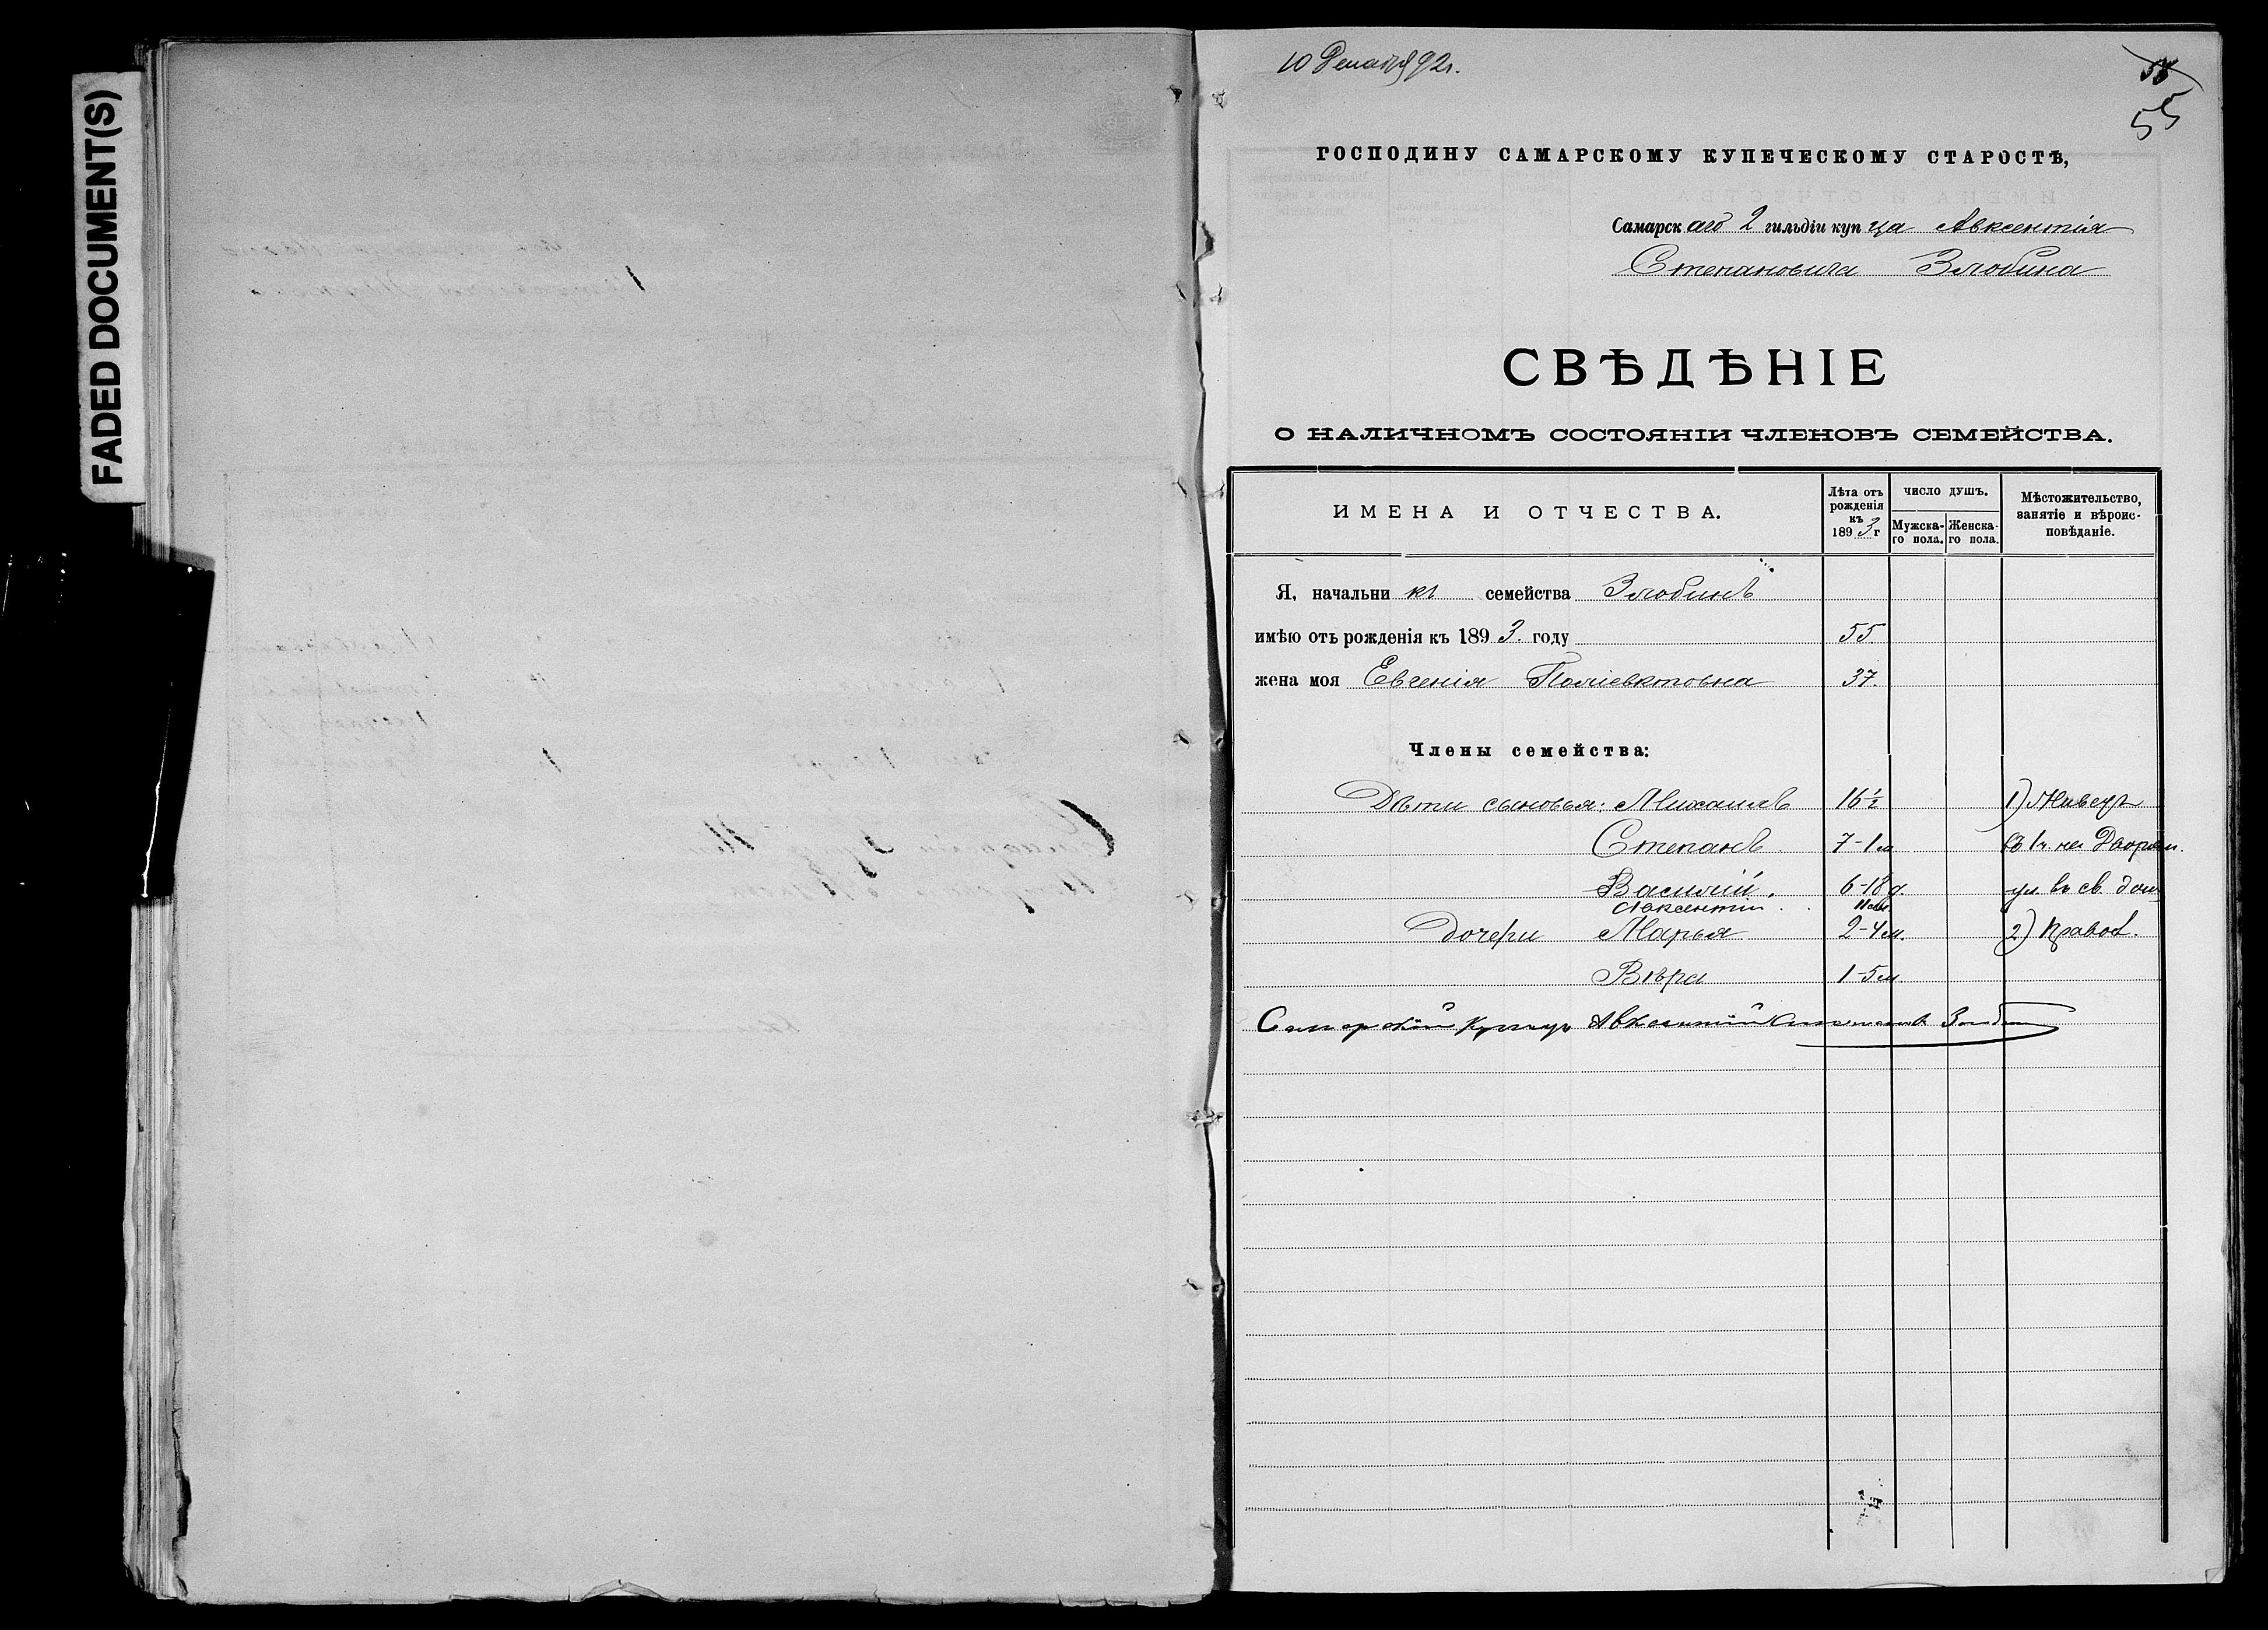 FADED DOCUMENT(S)
10 Декабря 92 г.
55
ГОСПОДИНУ САМАРСКОМУ КУПЕЧЕСКОМУ СТАРОСТѢ,
Самарскаго 2 гильдіи купца Авксентія
Степановича Злобина
СВѢДѢНІЕ
О НАЛИЧНОМЪ СОСТОЯНІИ ЧЛЕНОВЪ СЕМЕЙСТВА.
ИМЕНА И ОТЧЕСТВА.
Лѣта отъ рожденія къ 1893 г
ЧИСЛО ДУШЪ.
Мужска-го пола.
Женска-го пола.
Мѣстожительство, занятіе и вѣроис-повѣданіе.
Я, начальникъ семейства Злобинъ
имѣю отъ рожденія къ 1893. году 55
жена моя Евгенія Поліевктовна 37.
Члены семейства:
Дѣти сыновья: Михаилъ 16 1/2 1) Живетъ
Степанъ 7-1 м въ 1 ч. на Дворян.
Василій. 6-18 д. ул. въ св. дом
Авксентій. 11 мѣс
дочери Марья 2-4 м. 2) Правос.
Вѣра 1-5 м
Самарский купецъ Авксентий Степановъ Злобин